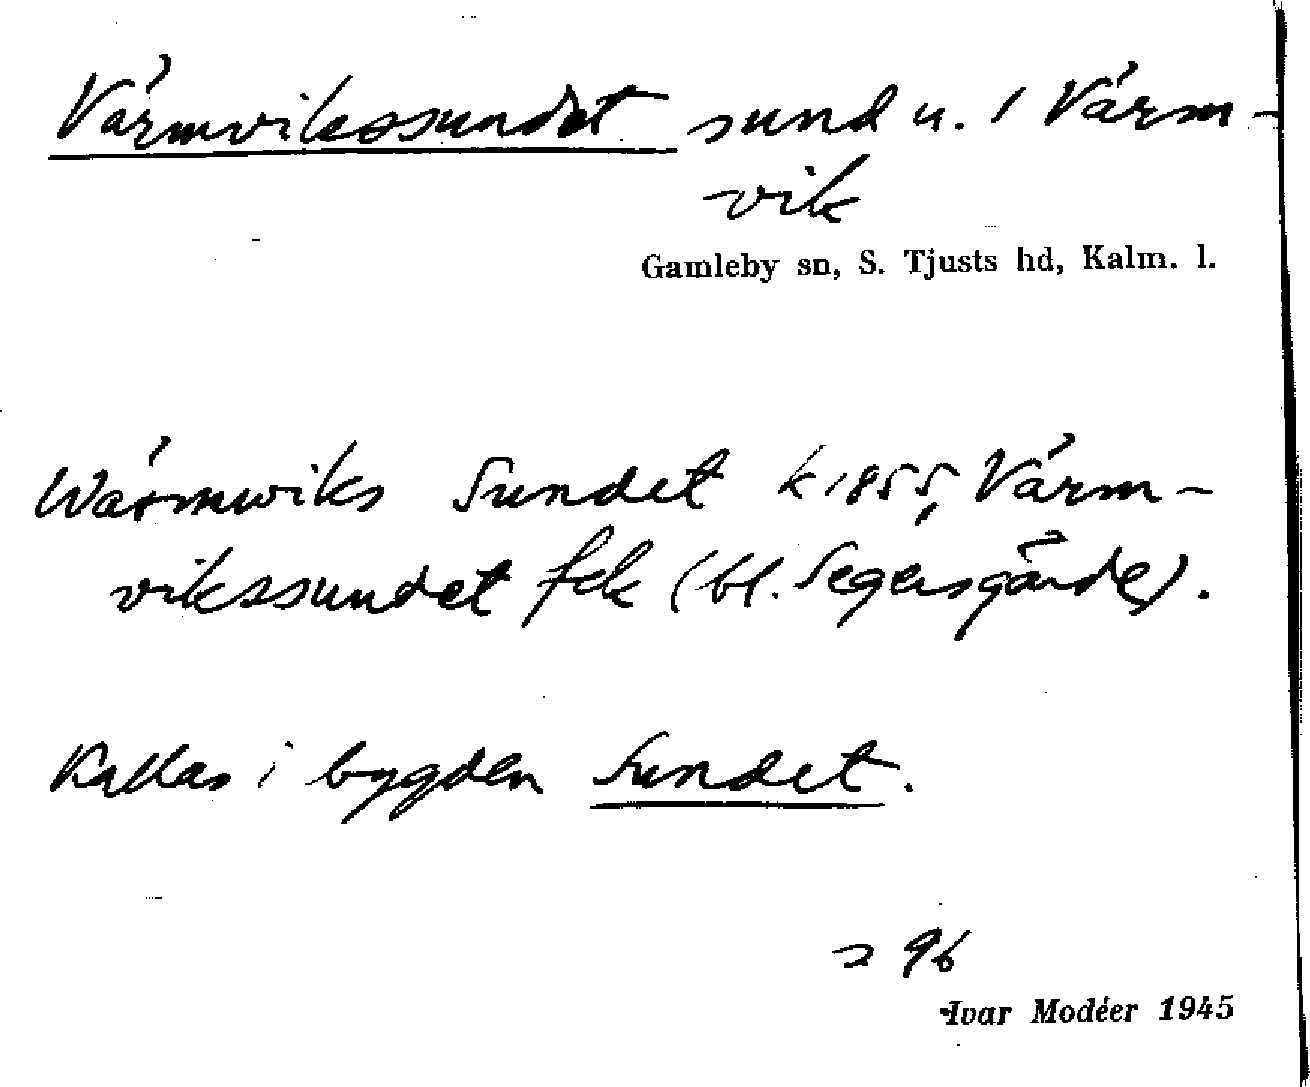 Värmvikssundet sund u. 1 Värm-
vik
Gamleby sn, S. Tjusts hd, Kalm. l.
Wärmwiks Sundet k 1855, Värm-
vikssundet fek (bl. Segersgärde).
Kallas i bygden Sundet.
s 96
Ivar Modéer 1945